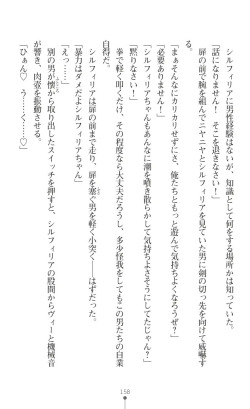 シルフィリアに男性経験はないが、知識として何をする場所かは知っていた。
「話になりません！　そこを退きなさい！」
扉の前で腕を組んでニヤニヤとシルフィリアを見ていた男に剣の切っ先を向けて威嚇す
る。
「まぁそんなにカリカリせずにさ、俺たちともっと遊んで気持ちよくなろうぜ？」
「必要ありません！」
「シルフィリアちゃんもあんなに潮を噴き散らかして気持ちよさそうにしてたじゃん？」
「黙りなさい！」
拳で軽く叩くだけ、その程度なら大丈夫だろうし、多少怪我をしてもこの男たちの自業
自得だ。
シルフィリアは扉の前まで走り、扉を塞ぐ男を軽く小突く――はずだった。
「暴力はダメだよシルフィリアちゃん」
「えっ……」
別の男が懐から取り出したスイッチを押すと、シルフィリアの股間からヴィーと機械音
が響き、肉壺を振動させる。
「ひぁん♡　う……く……♡」
158